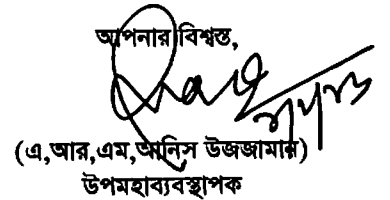 আপনার বিশ্বস্ত,
(এ,আর,এম,আনিস উজজামান)
উপমহাব্যবস্থাপক